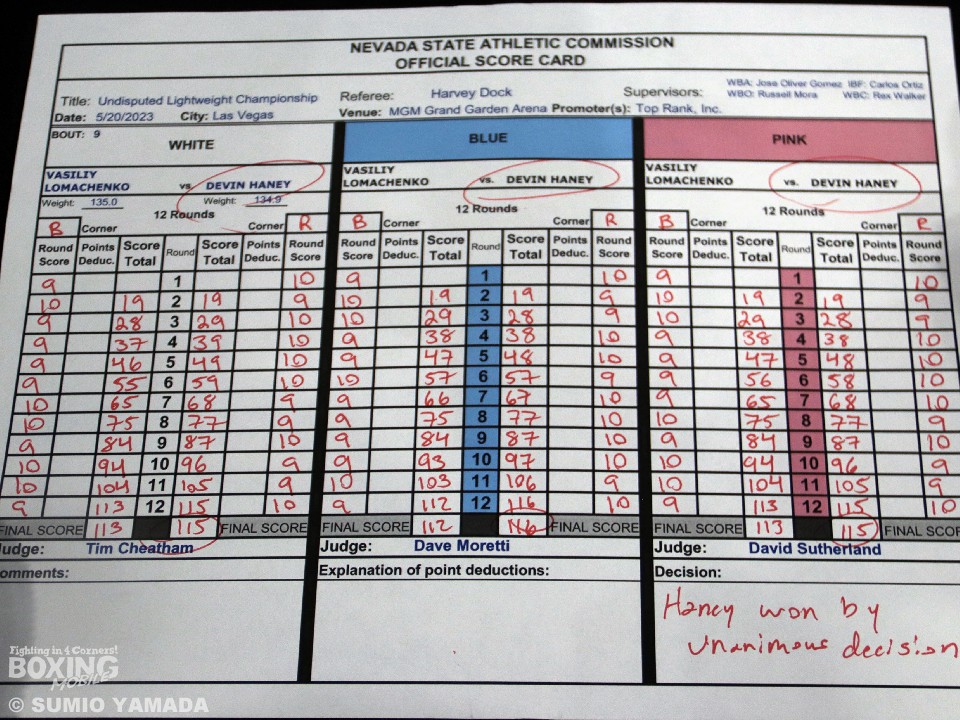 NEVADA STATE ATHLETIC COMMISSION
OFFICIAL SCORE CARD
Title: Undisputed Lightweight Championship Referee: Harvey Dock Supervisors: WBA: Jose Oliver Gomez IBF: Carlos Ortiz
WBO: Russell Mora WBC: Rex Walker
Date: 5/20/2023 City: Las Vegas Venue: MGM Grand Garden Arena Promoter(s): Top Rank, Inc.
BOUT: 9
WHITE BLUE PINK
VASILIY VASILIY VASILIY
LOMACHENKO vs. DEVIN HANEY LOMACHENKO vs. DEVIN HANEY LOMACHENKO vs. DEVIN HANEY
Weight: 135.0 Weight: 134.9
12 Rounds 12 Rounds 12 Rounds
B Corner Corner R B Corner Corner R B Corner Corner R
Round Points Score Round Score Points Round Round Points Score Round Score Points Round Round Points Score Round Score Points Round
Score Deduc. Total Total Deduc. Score Score Deduc. Total Total Deduc. Score Score Deduc. Total Total Deduc. Score
9 1 10 9 1 10 9 1 10
10 19 2 19 9 10 19 2 19 9 10 19 2 19 9
9 28 3 29 10 10 29 3 28 9 10 29 3 28 9
9 37 4 39 10 9 38 4 38 10 9 38 4 38 10
9 46 5 49 10 9 47 5 48 10 9 47 5 48 10
9 55 6 59 10 10 57 6 57 9 9 56 6 58 10
10 65 7 68 9 9 66 7 67 10 9 65 7 68 10
10 75 8 77 9 9 75 8 77 10 10 75 8 77 9
9 84 9 87 10 9 84 9 87 10 9 84 9 87 10
10 94 10 96 9 9 93 10 97 10 10 94 10 96 9
10 104 11 105 9 10 103 11 106 9 10 104 11 105 9
9 113 12 115 10 9 112 12 116 10 9 113 12 115 10
FINAL SCORE 113 115 FINAL SCORE FINAL SCORE 112 116 FINAL SCORE FINAL SCORE 113 115 FINAL SCOR
Judge: Tim Cheatham Judge: Dave Moretti Judge: David Sutherland
omments: Explanation of point deductions: Decision:
Haney won by
unanimous decision
Fighting in 4 Corners!
BOXING
MOBILE
© SUMIO YAMADA